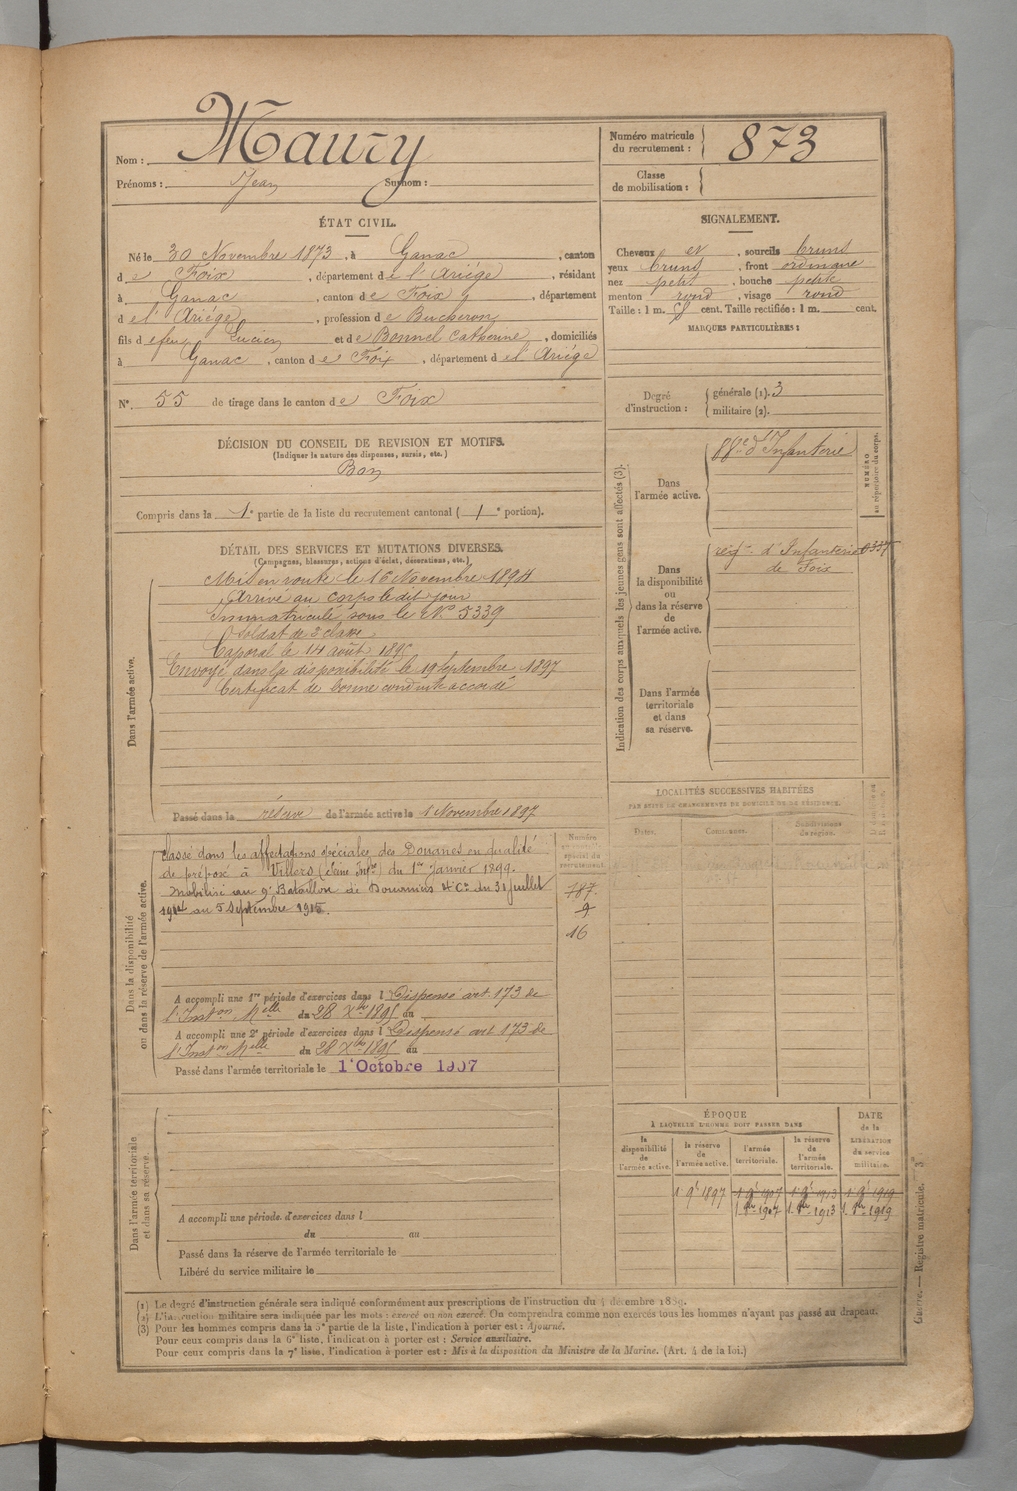 Nom : Maury
Prénoms : Jean Surnom :
Numéro matricule du recrutement : 873
Classe de mobilisation :
ÉTAT CIVIL.
Né le 30 Novembre 1873, à Ganac, canton
de Foix, département de l'Ariège, résidant
à Ganac, canton de Foix, département
de l'Ariège, profession de Bucheron
fils de feu Lucien et de Bonnel Catherine, domiciliés
à Ganac, canton de Foix, département de l'Ariège
N° 55 de tirage dans le canton de Foix
SIGNALEMENT.
Cheveux et, sourcils bruns
yeux bruns, front ordinaire
nez petit, bouche petite
menton rond, visage rond
Taille : 1 m. cent. Taille rectifiée : 1 m. cent.
MARQUES PARTICULIÈRES :
Degré d'instruction : générale (1). 3
militaire (2).
DÉCISION DU CONSEIL DE REVISION ET MOTIFS.
(Indiquer la nature des dispenses, sursis, etc.)
Bon
Compris dans la 1e partie de la liste du recrutement cantonal ( 1e portion).
DÉTAIL DES SERVICES ET MUTATIONS DIVERSES.
(Campagnes, blessures, actions d'éclat, décorations, etc.)
Dans l'armée active.
Mis en route le 16 Novembre 1894
Arrivé au corps le dit jour
Immatriculé sous le N° 5339
Soldat de 2 classe
Caporal le 14 août 1895
Envoyé dans la disponibilité le 19 Septembre 1897
Certificat de bonne conduite accordé
Passé dans la réserve de l'armée active le 1 Novembre 1897
Indication des corps auxquels les jeunes gens sont affectés (3).
NUMÉRO au répertoire du corps.
Dans l'armée active.
88e d'Infanterie
Dans la disponibilité ou dans la réserve de l'armée active.
régt d'Infanterie
de Foix
Dans l'armée territoriale et dans sa réserve.
LOCALITÉS SUCCESSIVES HABITÉES
PAR SUITE DE CHANGEMENTS DE DOMICILE OU DE RÉSIDENCE.
Dates.
Communes.
Subdivisions de région.
Dans la disponibilité ou dans la réserve de l'armée active.
Numéro spécial du recrutement.
Classé dans les affectations spéciales des Douanes en qualité
de préposé à Villers (Seine Infre) du 1er Janvier 1899.
Mobilisé au 9e Bataillon de Douaniers Cie du 31 juillet
1914 au 5 Septembre 1915.
787
9
16
A accompli une 1re période d'exercices dans l Dispensé art. 173 de
l'Inston Melle du 28 Xbre 1895 au
A accompli une 2e période d'exercices dans l Dispensé art 173 de
l'Inston Melle du 28 Xbre 1895 au
Passé dans l'armée territoriale le 1 Octobre 1907
Dans l'armée territoriale et dans sa réserve.
A accompli une période d'exercices dans l
du au
Passé dans la réserve de l'armée territoriale le
Libéré du service militaire le
ÉPOQUE
À LAQUELLE L'HOMME DOIT PASSER DANS
DATE de la LIBÉRATION du service militaire.
la disponibilité de l'armée active.
la réserve de l'armée active.
l'armée territoriale.
la réserve de l'armée territoriale.
1 9b 1897 1 9b 1907 1 9b 1913 1 9b 1919
1 8bre 1907 1 8bre 1913 1 8bre 1919
(1) Le degré d'instruction générale sera indiqué conformément aux prescriptions de l'instruction du 4 décembre 1889.
(2) L'instruction militaire sera indiquée par les mots : exercé ou non exercé. On comprendra comme non exercés tous les hommes n'ayant pas passé au drapeau.
(3) Pour les hommes compris dans la 5e partie de la liste, l'indication à porter est : Ajourné.
Pour ceux compris dans la 6e liste, l'indication à porter est : Service auxiliaire.
Pour ceux compris dans la 7e liste, l'indication à porter est : Mis à la disposition du Ministre de la Marine. (Art. 4 de la loi.)
Guerre. — Registre matricule. 3e